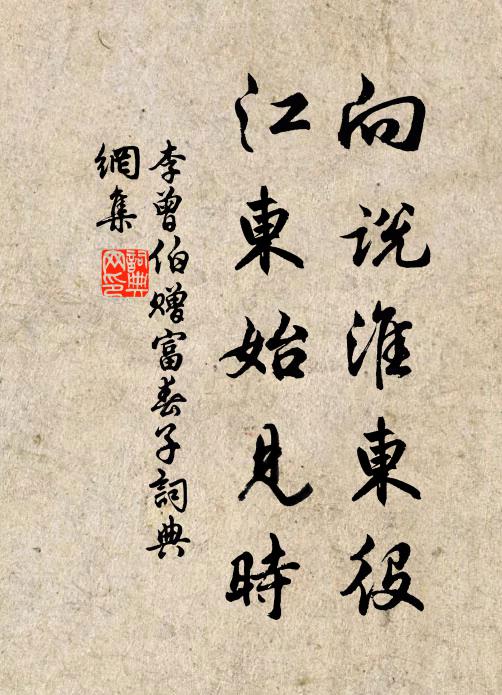 向說淮東役
江東始見時
李曾伯贈富春子詞典
網集
詞典網印